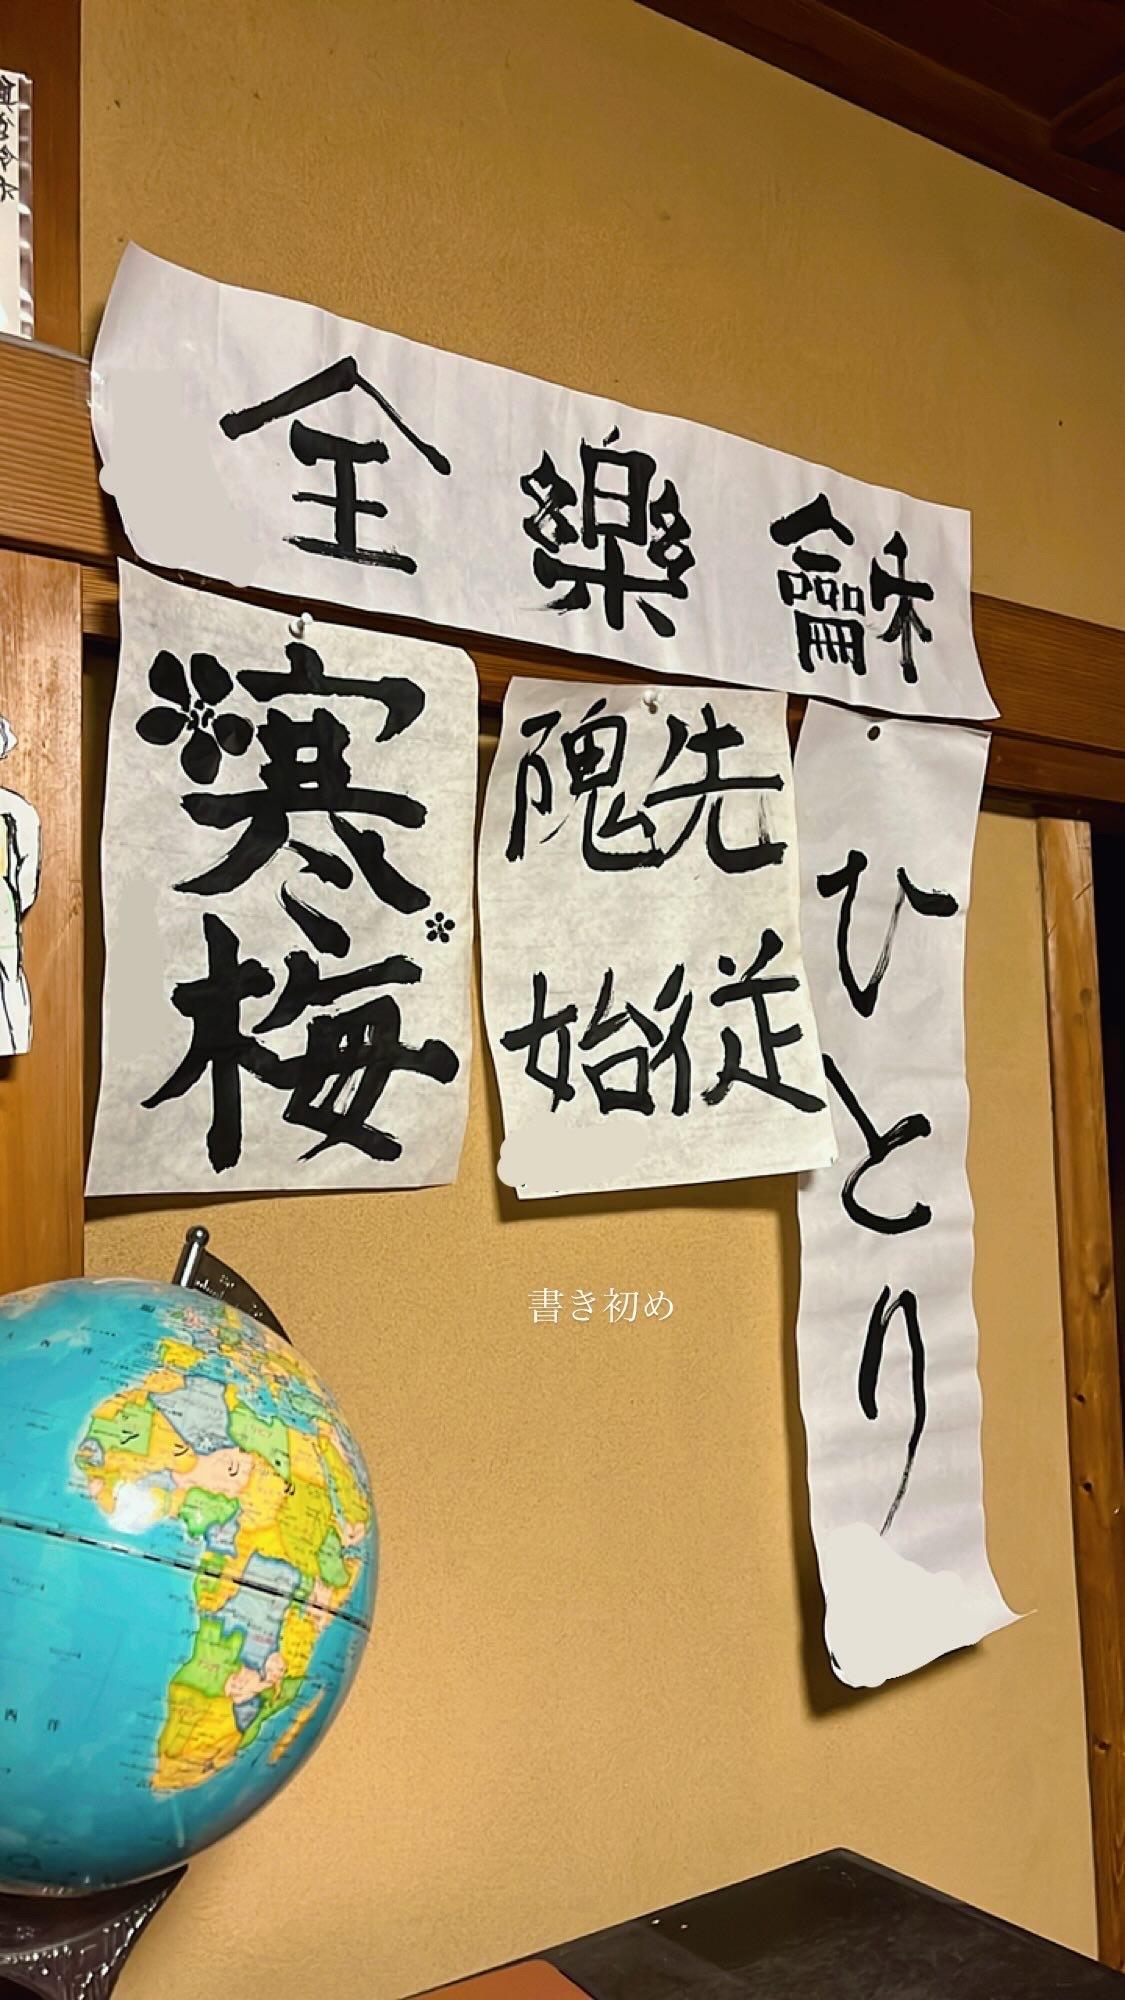 龢樂全
ひとり
先従
隗始
寒梅
書き初め
アフリカ